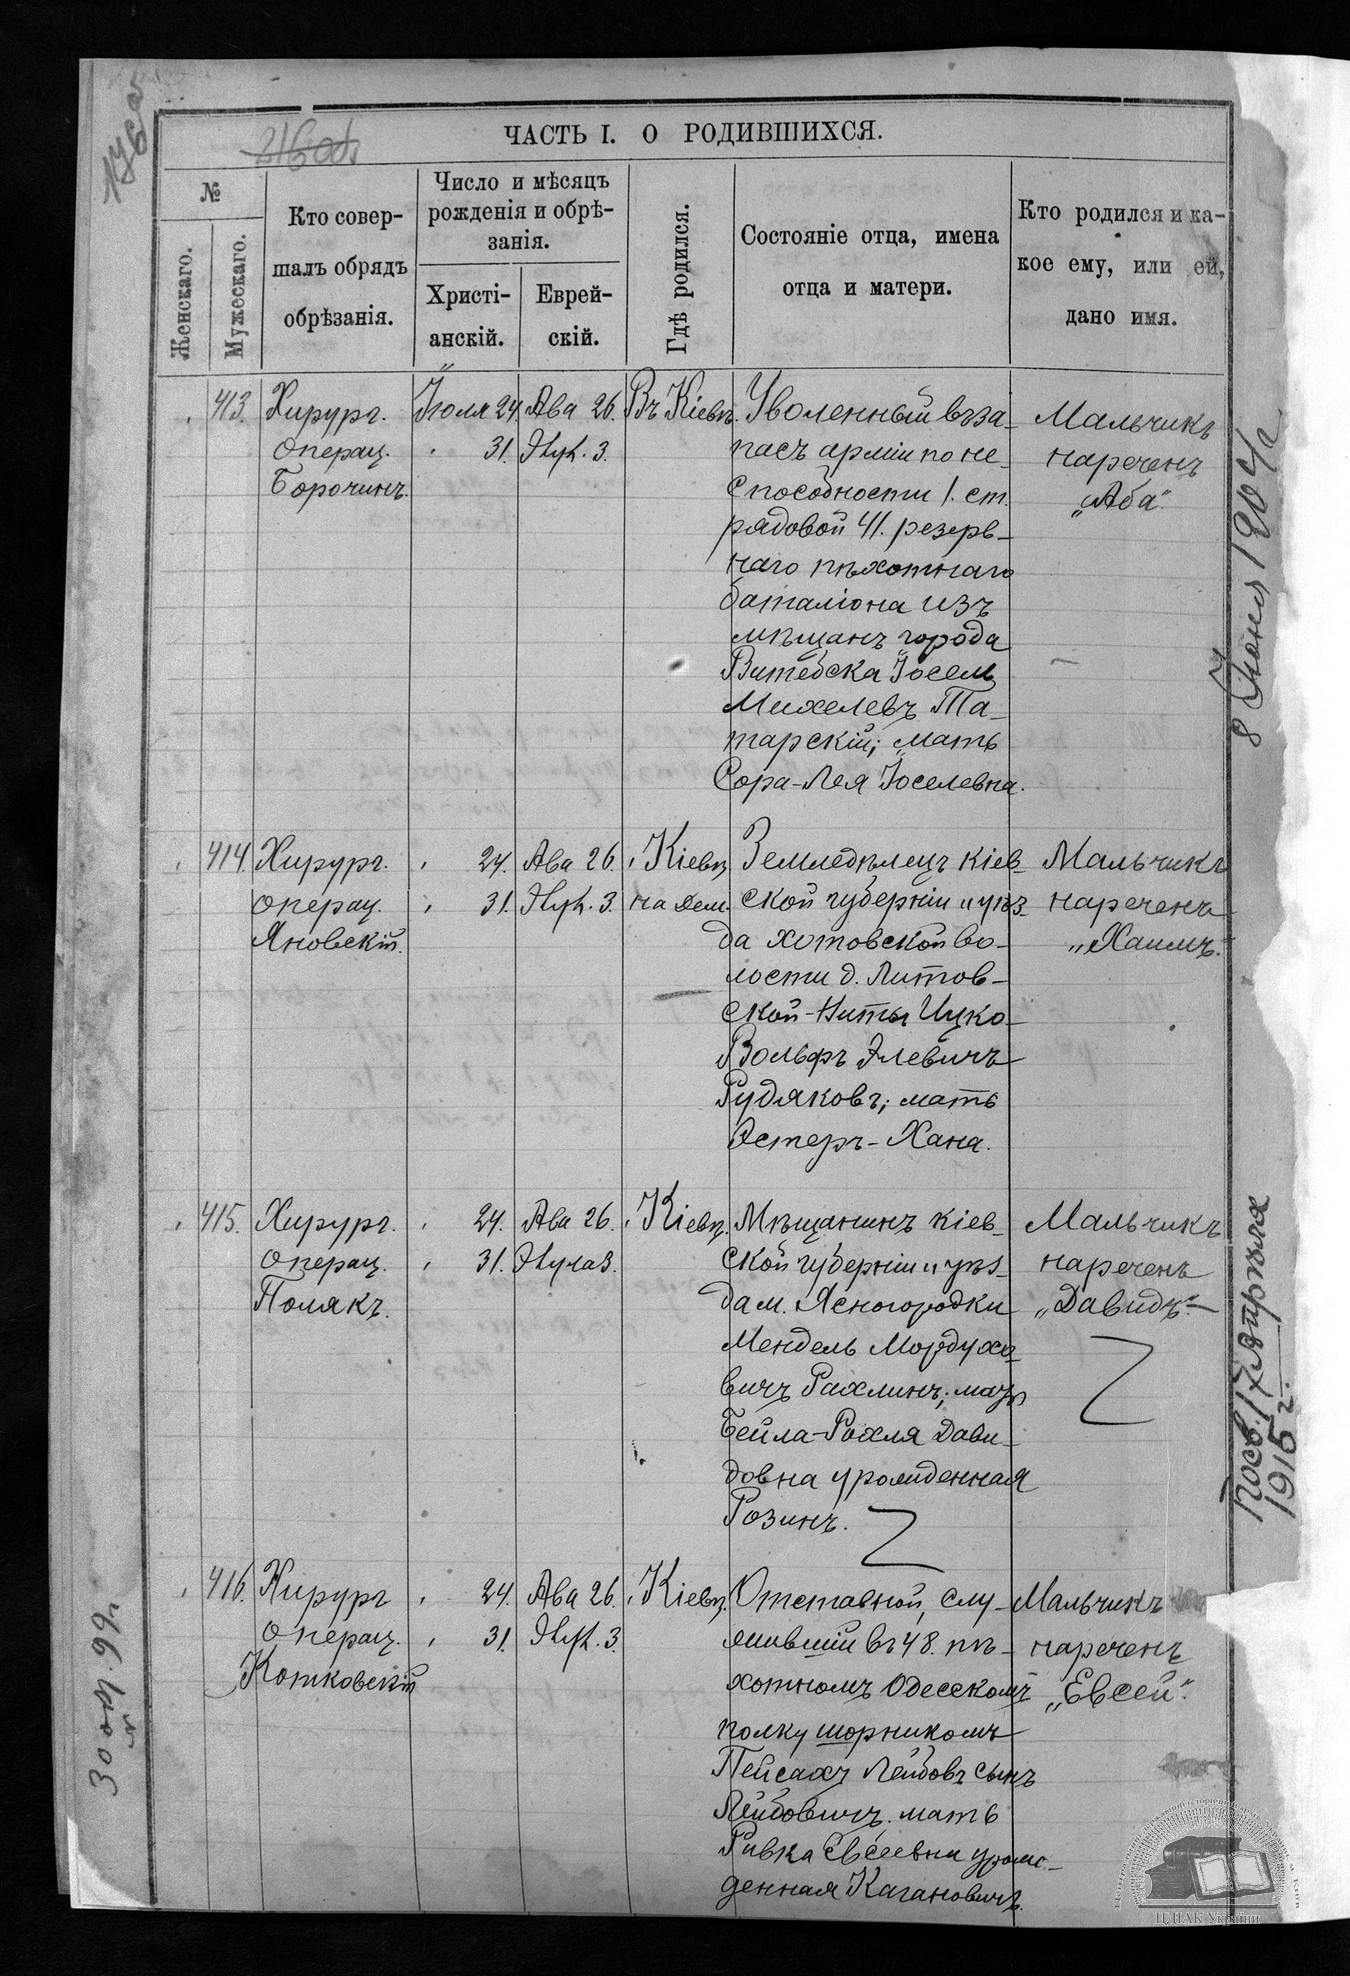 176 об
216 об
ЧАСТЬ I. О РОДИВШИХСЯ.
№
Женскаго.
Мужескаго.
Кто совер-
шалъ обрядъ
обрѣзанія.
Число и мѣсяцъ
рожденія и обрѣ-
занія.
Христі-
анскій.
Еврей-
скій.
Гдѣ родился.
Состояніе отца, имена
отца и матери.
Кто родился и ка-
кое ему, или ей,
дано имя.
413.
Хирург.
Операц.
Борочинъ.
Іюля 24.
" 31.
Ава 26.
Элул. 3.
Въ Кіевѣ.
Уволенный въ за-
пасъ арміи по не-
способности 1. ст.
рядовой 41. резерв-
наго пѣхотнаго
баталіона изъ
мѣщанъ города
Витебска Іосель
Михелевъ Та-
тарскій; мать
Сора-Лея Іоселевна.
Мальчикъ
нареченъ
„Аба".
414.
Хирург.
операц.
Яновскій.
" 24.
" 31.
Ава 26.
Элул. 3.
" Кіевѣ
на Дем.
Земледѣлецъ Кіев-
ской губерніи и уѣз-
да Хотовской во-
лости д. Литов-
ской-Виты Ицко-
Вольфъ Элевичъ
Рудяковъ; мать
Эстеръ-Хана.
Мальчикъ
нареченъ
„Хаимъ".
415.
Хирург.
операц.
Полякъ.
" 24.
" 31.
Ава 26.
Элула 3.
" Кіевѣ.
Мѣщанинъ Кіев-
ской губерніи и уѣз-
да м. Ясногородки
Мендель Мордухо-
вичъ Рахлинъ; мать
Бейла-Рохля Дави-
довна урожденная
Розинъ.
Мальчикъ
нареченъ
„Давидъ".
416.
Хирург
Операц.
Котковскій
" 24.
" 31.
Ава 26.
Элул. 3
" Кіевѣ.
Отставной, слу-
жившій въ 48. пѣ-
хотномъ Одесскомъ
полку шорникомъ
Пейсахъ Лейбовъ сынъ
Лейбовичъ. мать
Ривка Евсеевна урож-
денная Кагановичъ.
Мальчикъ
нареченъ
„Евсей".
8 Іюня 1904 г
17 Апрѣля
1915 г.
ЦДІАК України